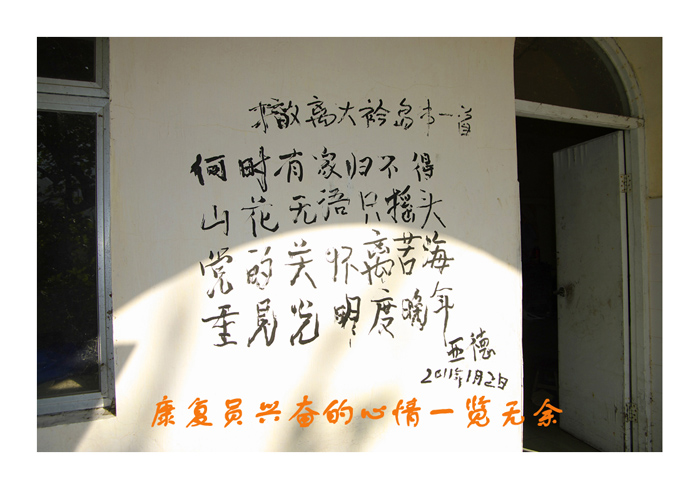 撤离大衿岛本一首
何时有家归不得
山花无语只摇头
党的关怀离苦海
重见光明度晚年
亚德
2011年1月2日
康复员兴奋的心情一览无余